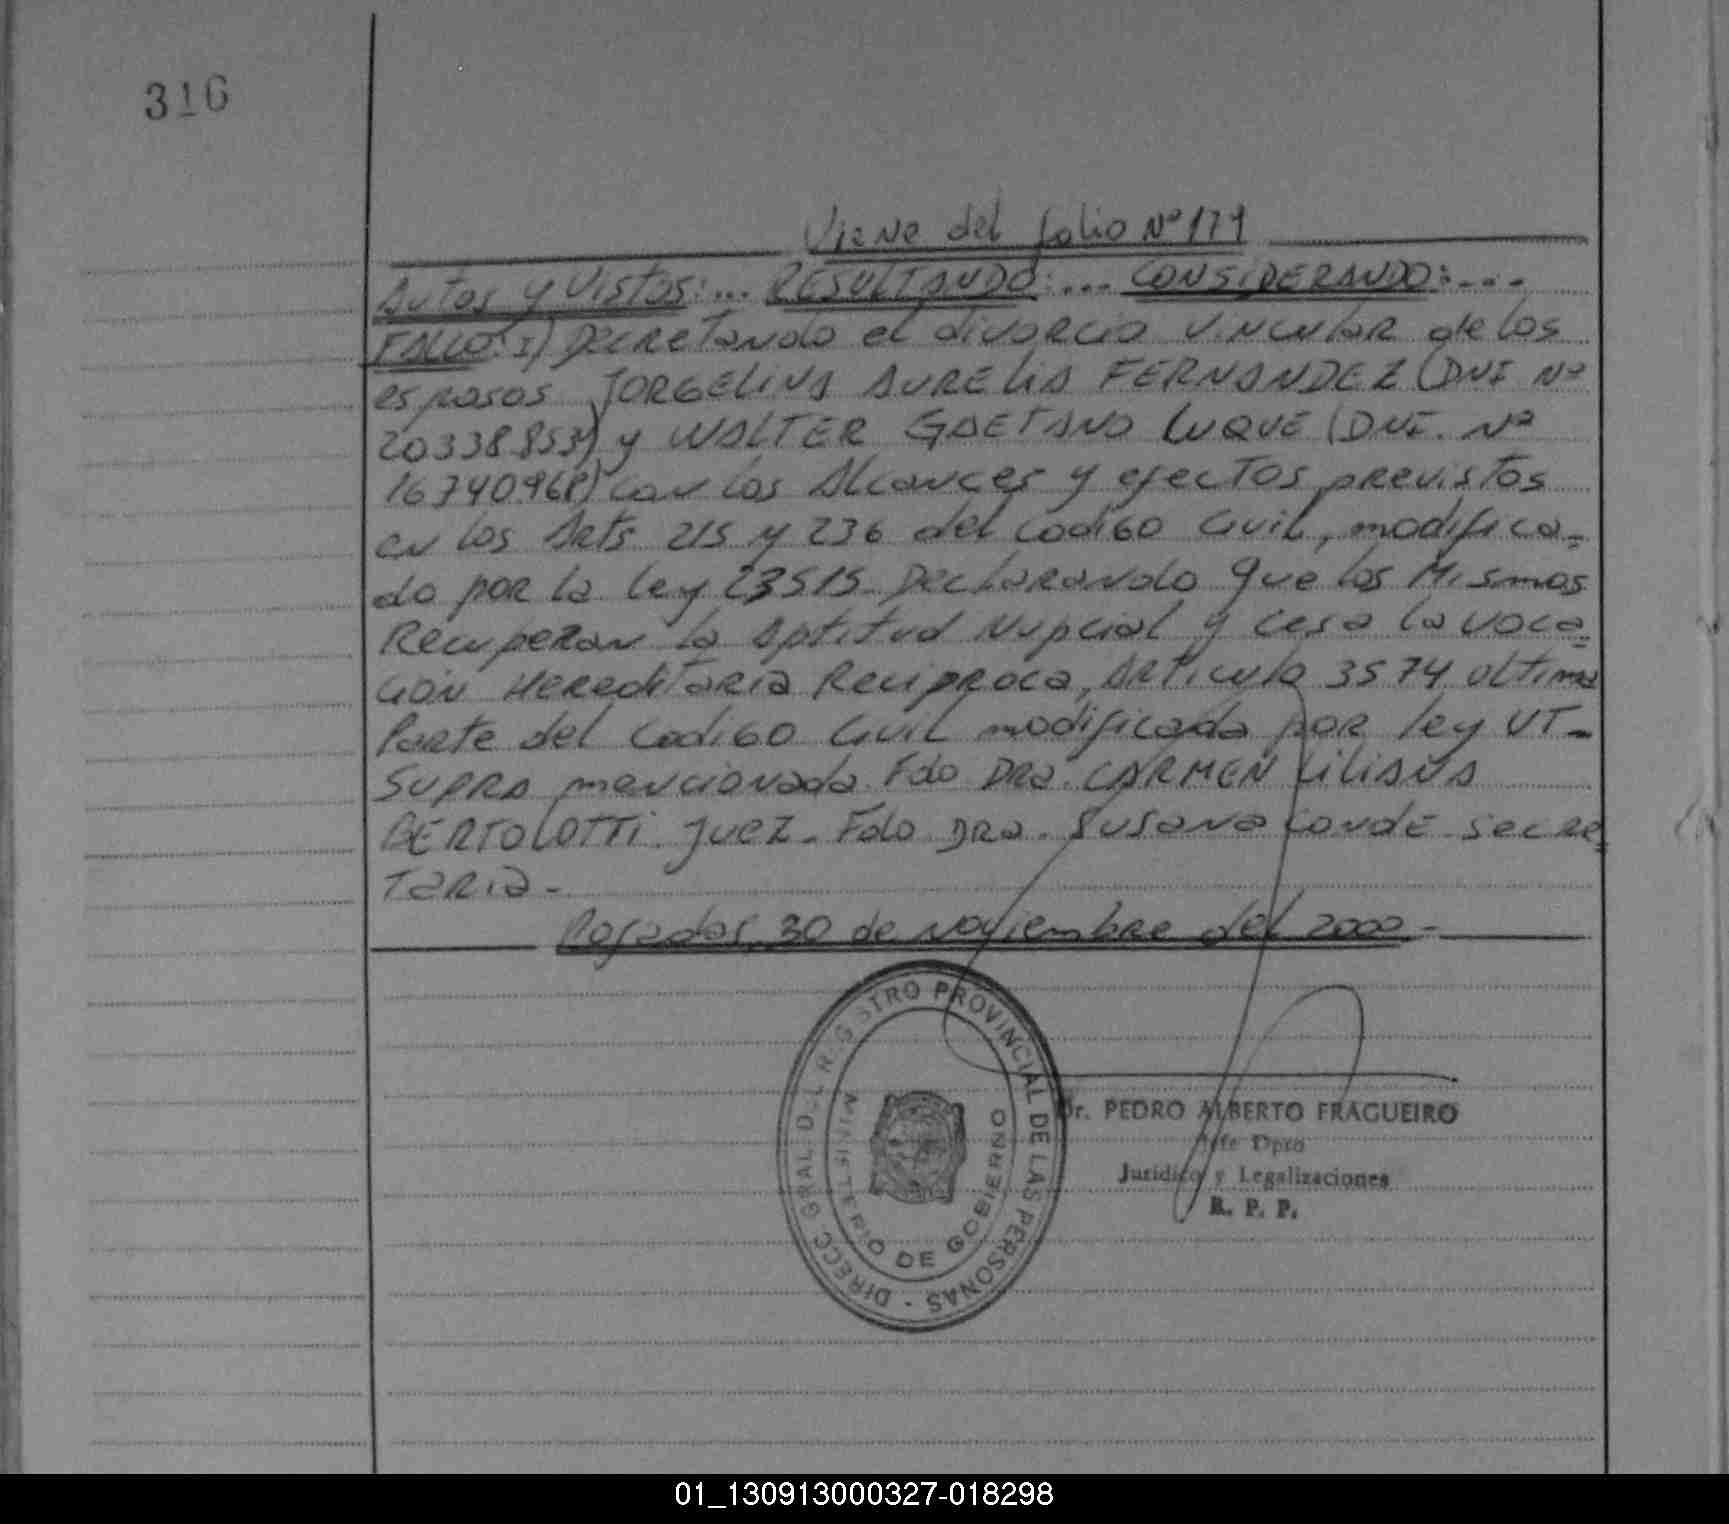 316
Viene del folio Nº 171
Autos y Vistos:... RESULTANDO:... CONSIDERANDO:...
FALLO: I) Decretando el divorcio vincular de los
esposos JORGELINA AURELIA FERNANDEZ (DNI Nº
20338.853) y WALTER GAETANO LUQUE (DNI. Nº
16740.968) con los Alcances y efectos previstos
en los Arts 215 y 236 del codigo Civil, modifica-
do por la ley 23515. Declarando que los Mismos
Recuperan la Aptitud Nupcial y cesa la voca-
ción Hereditaria Reciproca, Articulo 3574 ultima
Parte del Codigo Civil modificada por ley UT-
SUPRA mencionada. Fdo Dra. CARMEN LILIANA
BERTOLOTTI. Juez. Fdo Dra. Susana Conde Secre-
taria.-
Posadas, 30 de Noviembre del 2000.-
DIRECC. GRAL. DEL REGISTRO PROVINCIAL DE LAS PERSONAS -
MINISTERIO DE GOBIERNO
Dr. PEDRO ALBERTO FRAGUEIRO
Jefe Dpto
Jurídico y Legalizaciones
R. P. P.
01_130913000327-018298